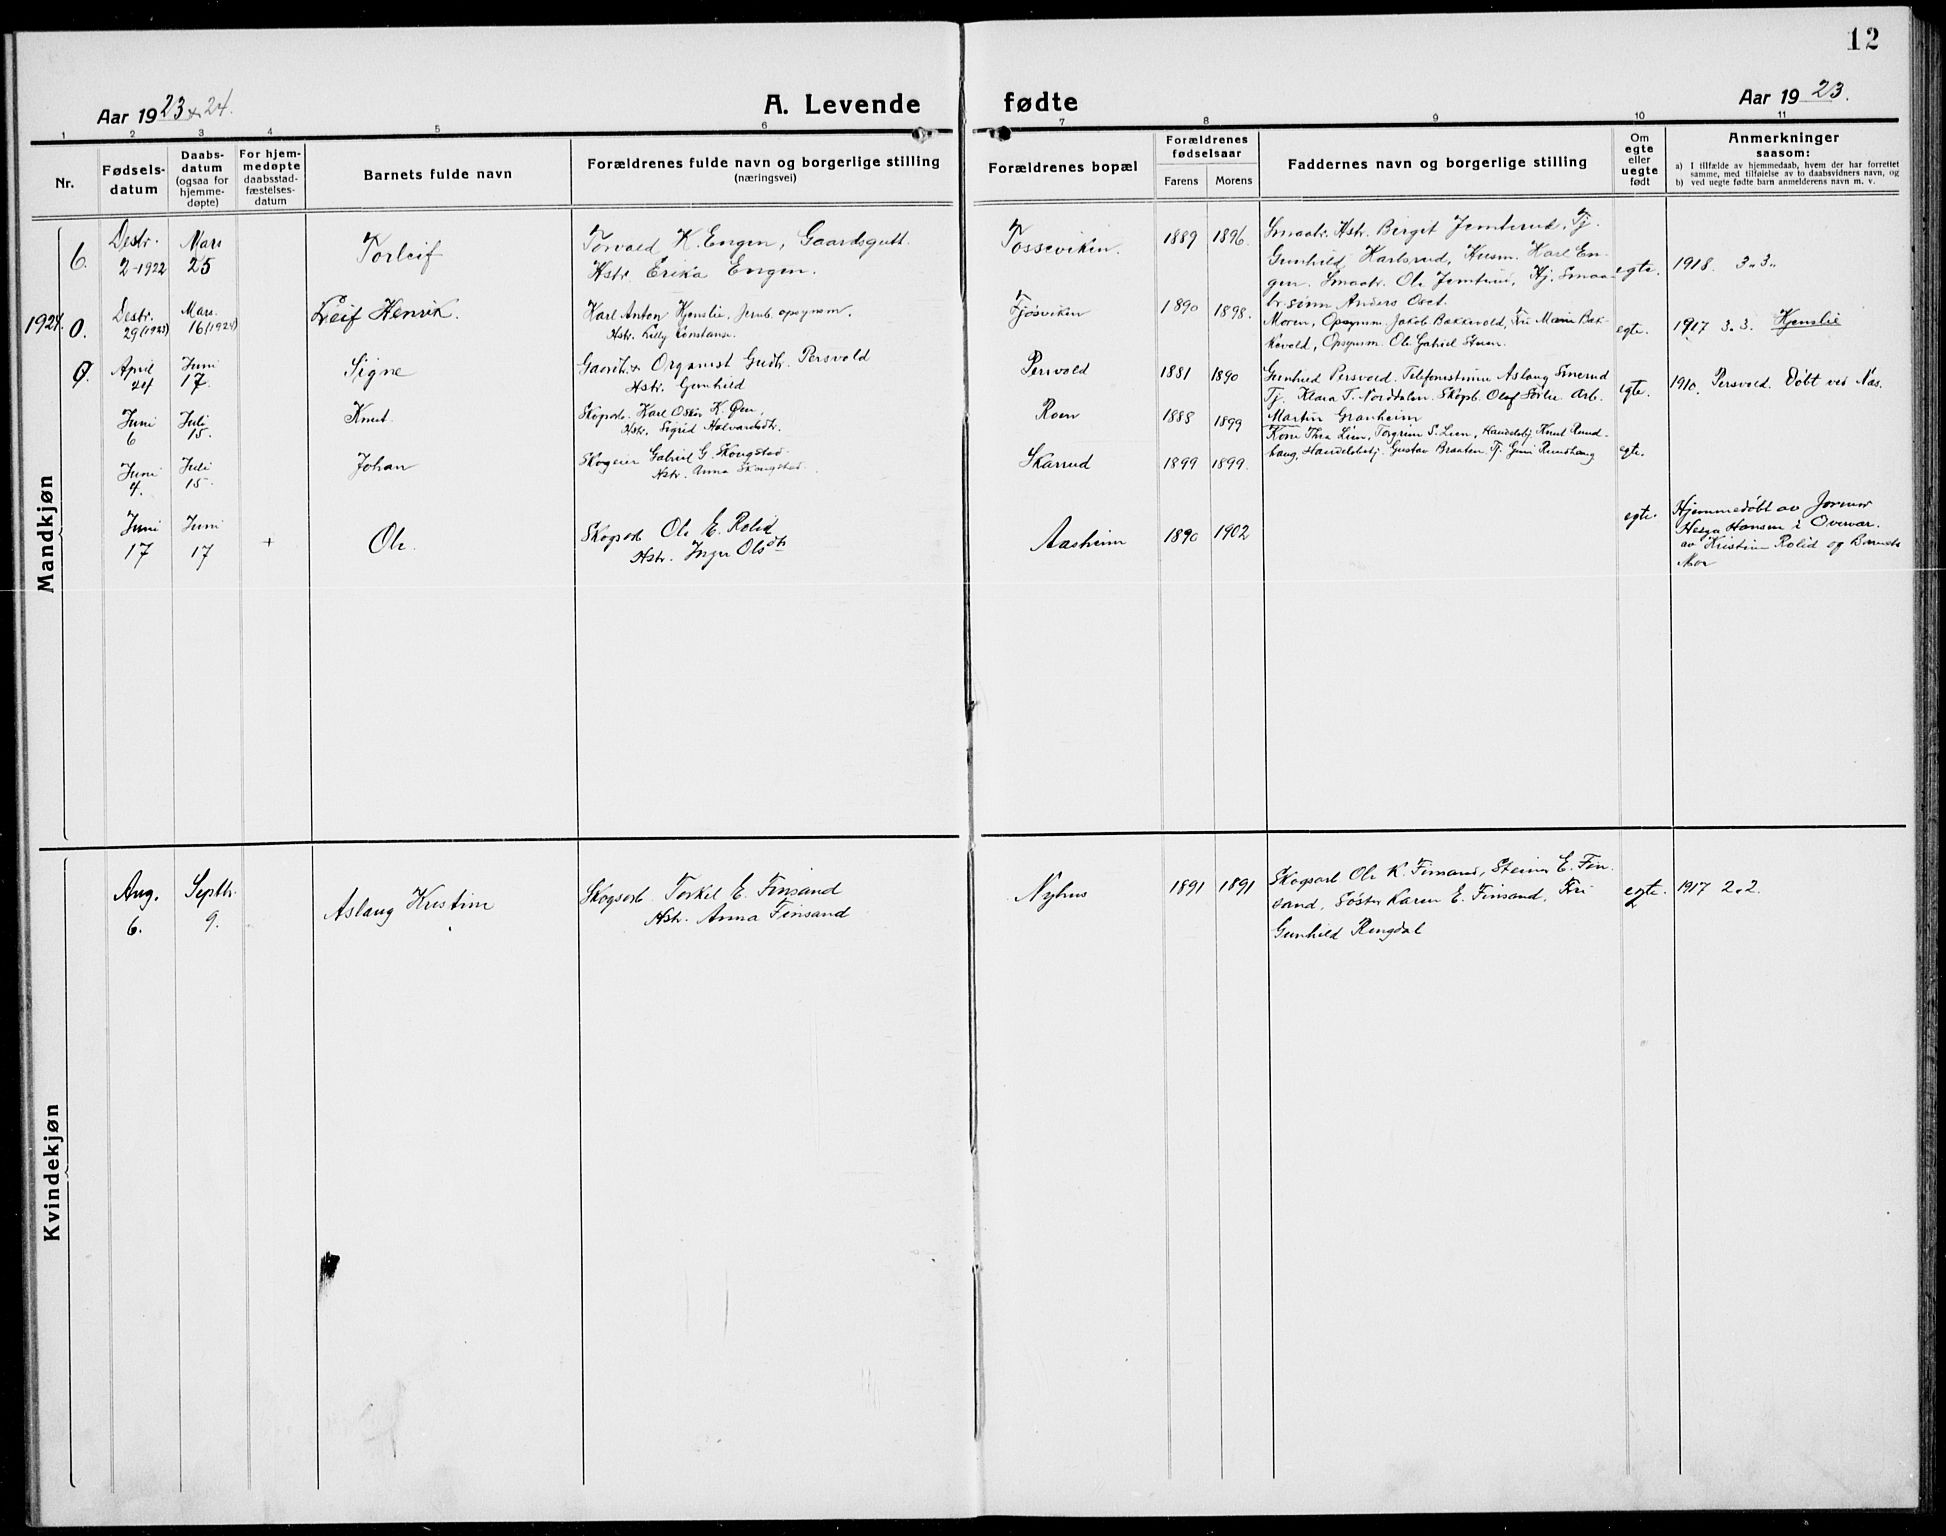 12
Aar 1923 & 24.
A. Levende fødte
Aar 1923.
1 2 3 4 5 6 7 8 9 10 11
Nr.
Fødsels-
datum
Daabs-
datum
(ogsaa for
hjemme-
døpte)
For hjem-
medøpte
daabsstad-
fæstelses-
datum
Barnets fulde navn
Forældrenes fulde navn og borgerlige stilling
(næringsvei)
Forældrenes bopæl
Forældrenes
fødselsaar
Farens Morens
Faddernes navn og borgerlige stilling
Om
egte
eller
uegte
født
Anmerkninger
saasom:
a) I tilfælde av hjemmedaab, hvem der har forrettet
samme, med tilføielse av to daabsvidners navn, og
b) ved uegte fødte barn anmelderens navn m. v.
Mandkjøn
6. Destr.
2-1922
Mars
25
Torleif
Torvald K. Engen, Gaardsgutt.
Hstr. Erika Engen.
Tossevikin.
1889 1896.
Smaabr. Hstr. Birgit Jemterud, Tj.
Gunhild Karlsrud, Husm. Karl En-
gen. Smaabr. Ole
Anders
egte.
1918. 3.3.
1924. 0. Destr.
29(1923)
Mars.
16(1924)
Leif Henrik.
Karl Anton Kjenslie, Jernb. opsynsm.
Hstr. Lilly Konstanse.
Tjøsvikin
1890 1898.
Moren, Opsynsm. Jakob Bakkevold, Fru Marie Bak-
kevold, Opsynsm. Ole Gabriel
egte.
1917 3.3. Kjenslie
0. April
24
Juni
17.
Signe
Organist Gudbr. Persvold
Hstr. Gunhild
Persvold
1881 1890
Gunhild Persvold. Telefonistinne Aslaug Smerud
Tj. Klara T. Norddalen. Skogsb. Olaf Sørlie Arb.
Martin Granheim
egte.
1910. Persvold. Døbt ved Næs.
Juni
6
Juli
15.
Knut.
Skogsarb. Karl Oskar K. Øen,
Hstr. Sigrid Halvardsdtr.
Roen
1888 1899
Kone Thea Lien, Torgrim S. Lien, Handelsbj. Knut Rund-
haug, Handelsbetj. Gustav Braaten. Tj. Guri Rundhaug
Juni
4.
Juli
15.
Johan
Skogeier Gabriel G. Skougstad
Hstr. Anna Skougstad.
Skarrud
1899 1899.
egte.
Juni
17
Juni
17
+
Ole.
Skogsarb Ole E. Rolid
Hstr. Inger Olsdtr
Aasheim
1890 1902
egte.
Hjemmedøbt av Jormor
Helga Hansen i Overvær.
av Kristine Rolid og Barnets
Mor
Kvindekjøn
Aug.
6.
Septbr.
9.
Aslaug Kristine
Skogsarb. Torkel E. Finsand
Hstr. Anna Finsand
Nyhus
1891 1891
Skogsarb Ole K. Finsand, Steinar E. Fin-
sand, Søster Karen E. Finsand, Fru
Gunhild Ringdal
egte.
1917 2.2.